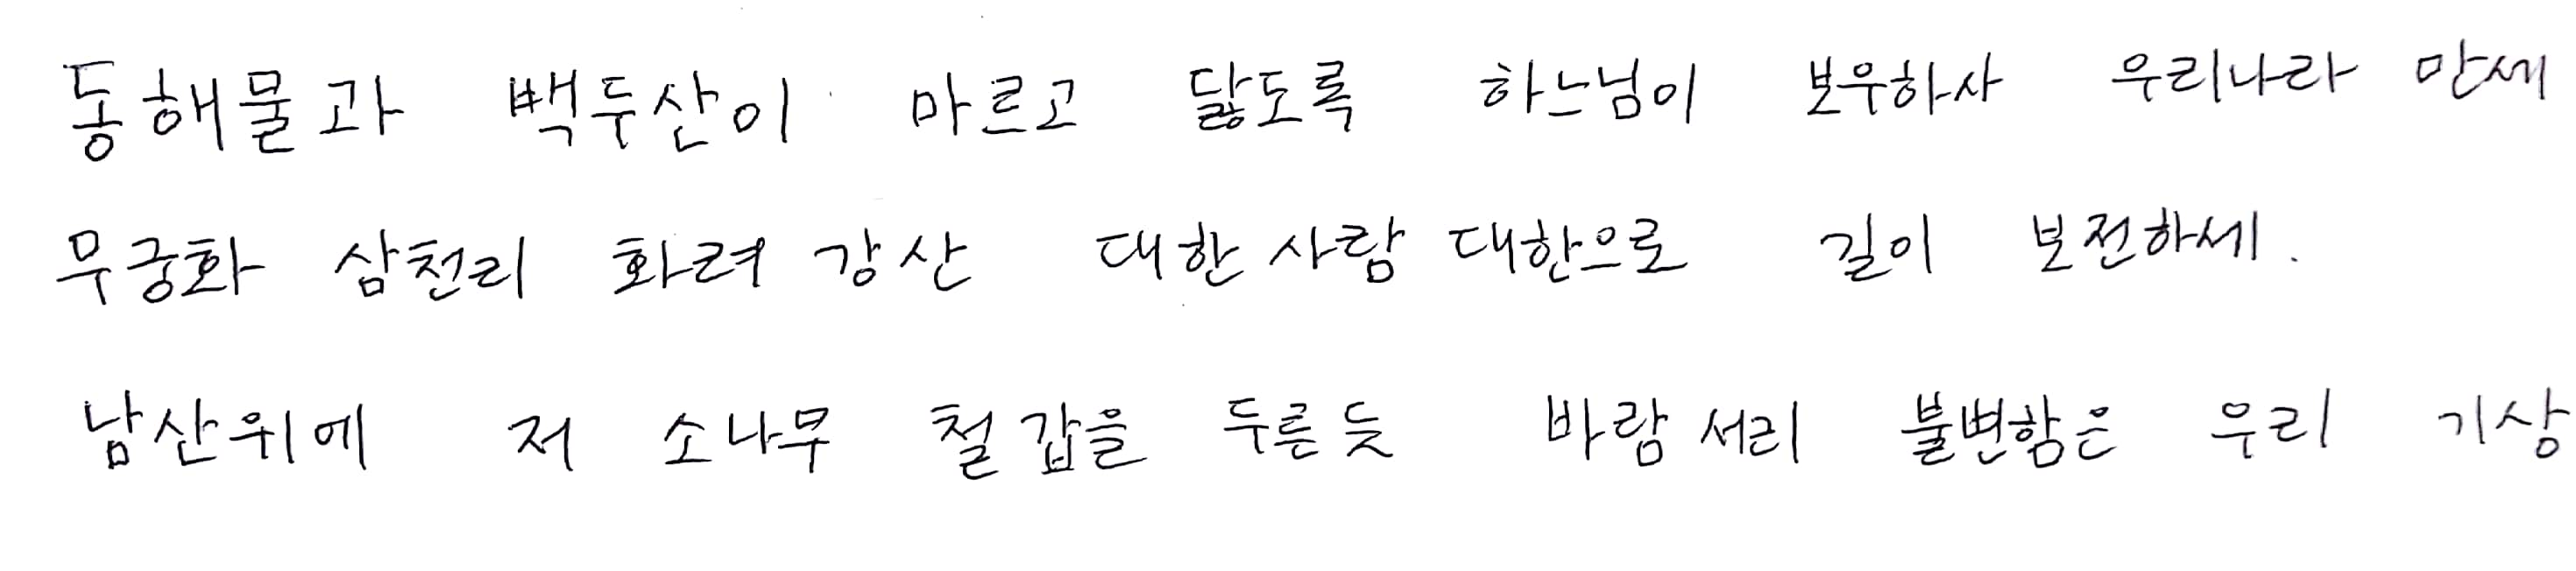 동해물과 백두산이 마르고 닳도록 하느님이 보우하사 우리나라 만세
무궁화 삼천리 화려 강산 대한 사람 대한으로 길이 보전하세.
남산위에 저 소나무 철갑을 두른듯 바람서리 불변함은 우리 기상